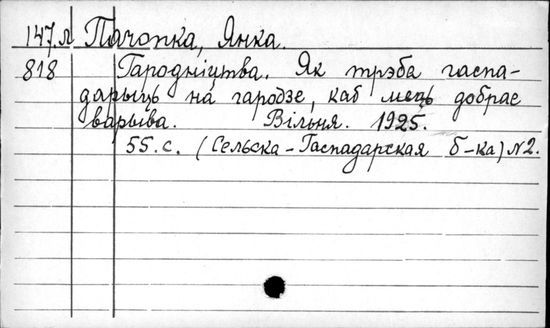 147.л Пачопка, Янка.
818 Гародніцтва. Як трэба гаспа-
дарыць на гародзе, каб мець добрае
варыва. Вільня. 1925.
55.с. (Сельска-Гаспадарская б-ка) №2.